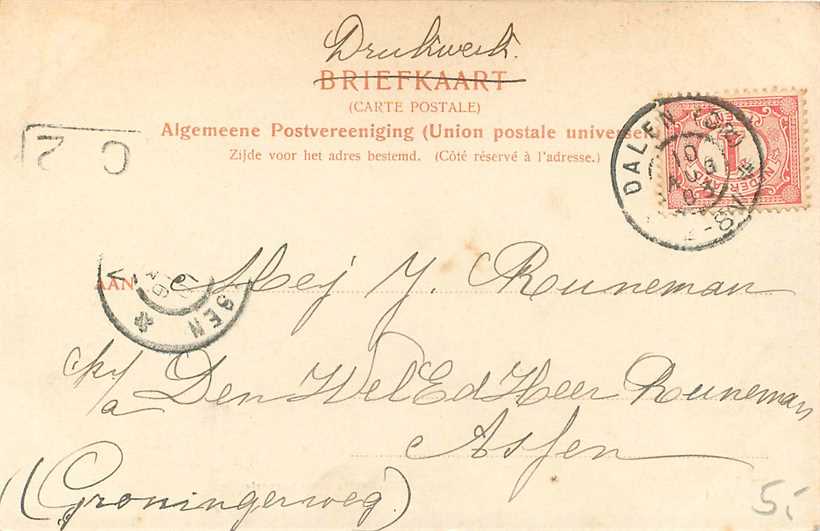 Drukwerk.
BRIEFKAART
(CARTE POSTALE)
Algemeene Postvereeniging (Union postale universe
Zijde voor het adres bestemd. (Côté réservé à l'adresse.)
DALEN
10
AUG
1
NEDERLAND
C 2
SEN
AAN
Mej J. Runeman
p/a Den WelEdHeer Runeman
Assen
(Groningerweg)
5,-